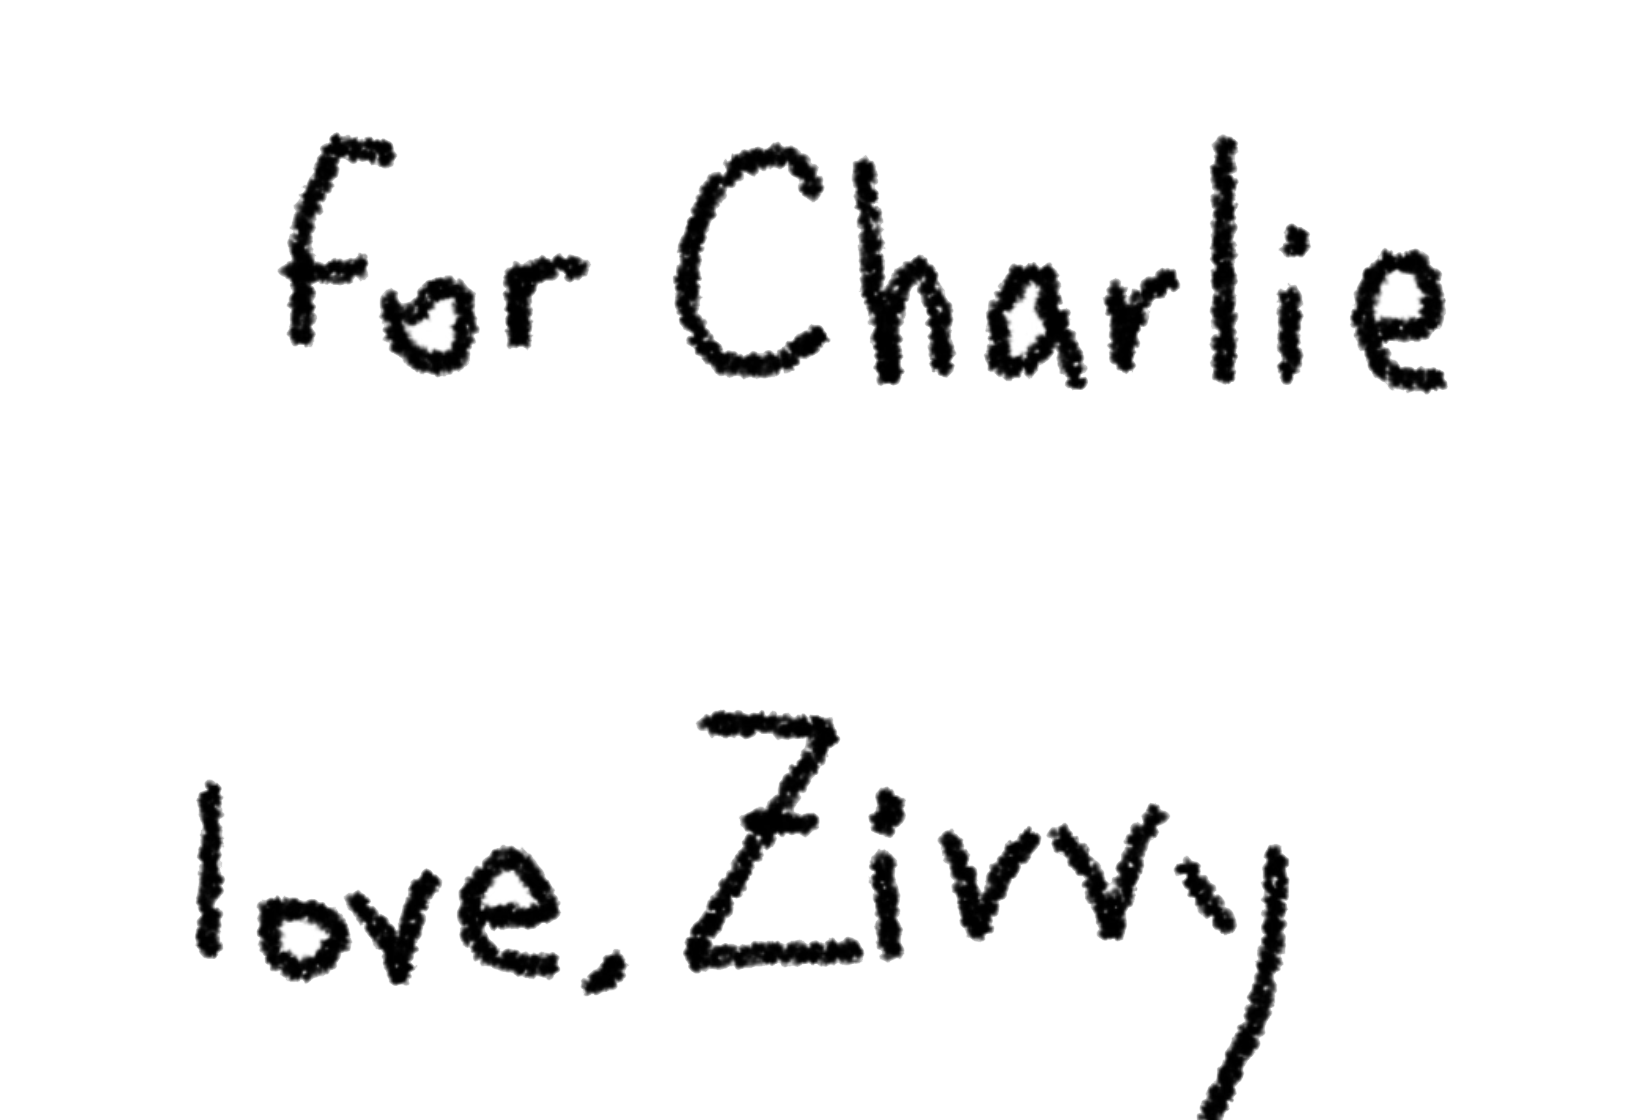 For Charlie
love, Zivvy